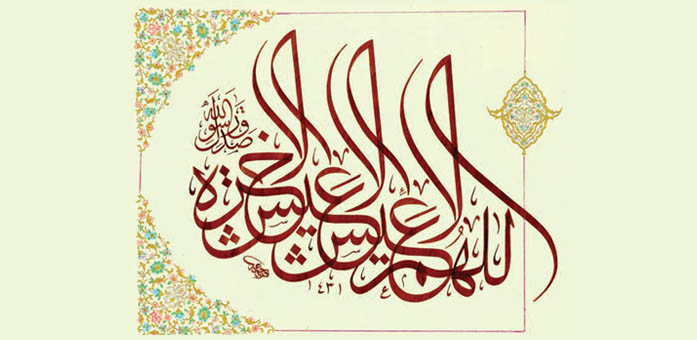 اللهم لا عيش إلا عيش الآخرة
صدق رسول الله
١٤٣١